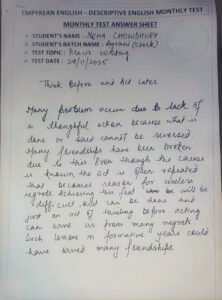 EMPYREAN ENGLISH - DESCRIPTIVE ENGLISH MONTHLY TEST
MONTHLY TEST ANSWER SHEET
➤ STUDENT'S NAME : NEHA CHOWDHURY
➤ STUDENT'S BATCH NAME : Agrani (Clerk)
➤ TEST TOPIC : Precis Writing
➤ TEST DATE : 29/11/2025
Think Before and Act Later
Many problem occur due to lack of
a thoughtful action because what is
done or said cannot be reversed.
Many friendships have been broken
due to this. Even though the cause
is known the act is often repeated
that becomes reason for useless
regrets. Achieving this feat will be
difficult but can be done and
just an act of thinking before acting
can save us from many regrets.
Such lesson in formative years could
have saved many friendships.